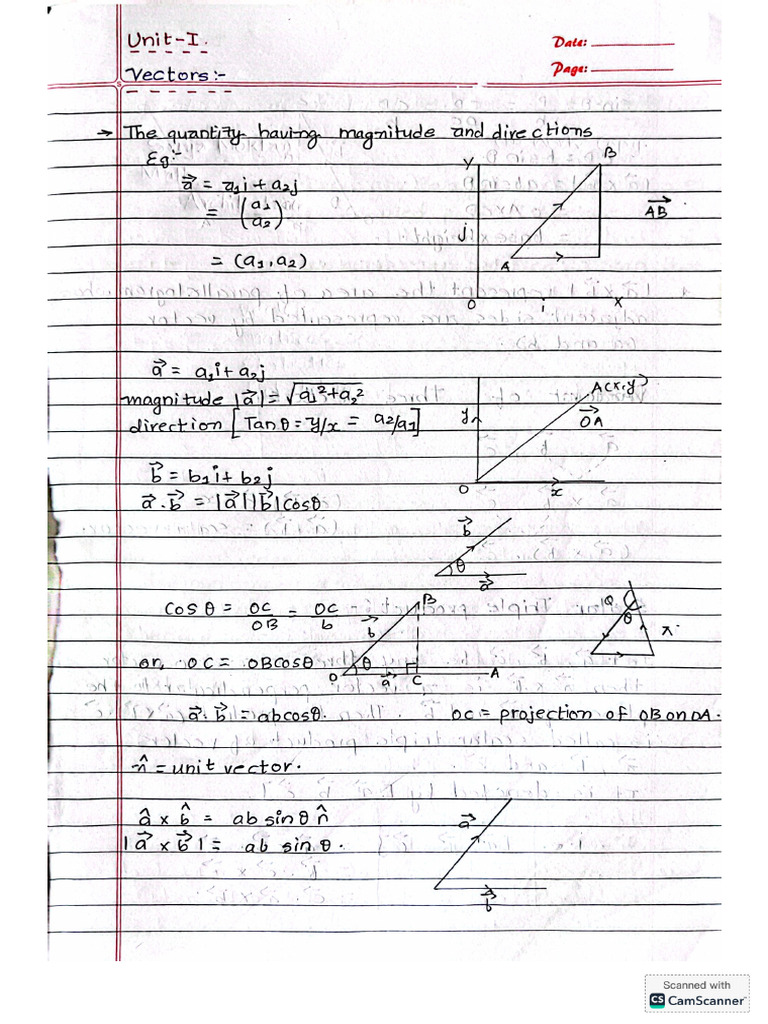 Unit-I.
Date:
Vectors:-
Page:
→ The quantity having magnitude and directions
Eg:-
a⃗ = a₁i + a₂j
= (a₁
a₂)
= (a₁, a₂)
y
B
AB⃗
j
A
O
i
x
a⃗ = a₁i + a₂j
magnitude |a⃗| = √a₁² + a₂²
direction [Tanθ = y/x = a₂/a₁]
A(x,y)
y
OA⃗
O
x
b⃗ = b₁i + b₂j
a⃗.b⃗ = |a⃗||b⃗|cosθ
b⃗
θ
a⃗
cosθ = OC/OB = OC/b
B
b⃗
θ
O
a⃗
C
A
Q
θ
or, OC = OBcosθ
a⃗.b⃗ = abcosθ.
OC = projection of OB on OA.
n̂ = unit vector.
â × b̂ = ab sinθ n̂
|a⃗ × b⃗| = ab sinθ.
a⃗
b⃗
Scanned with
CS CamScanner